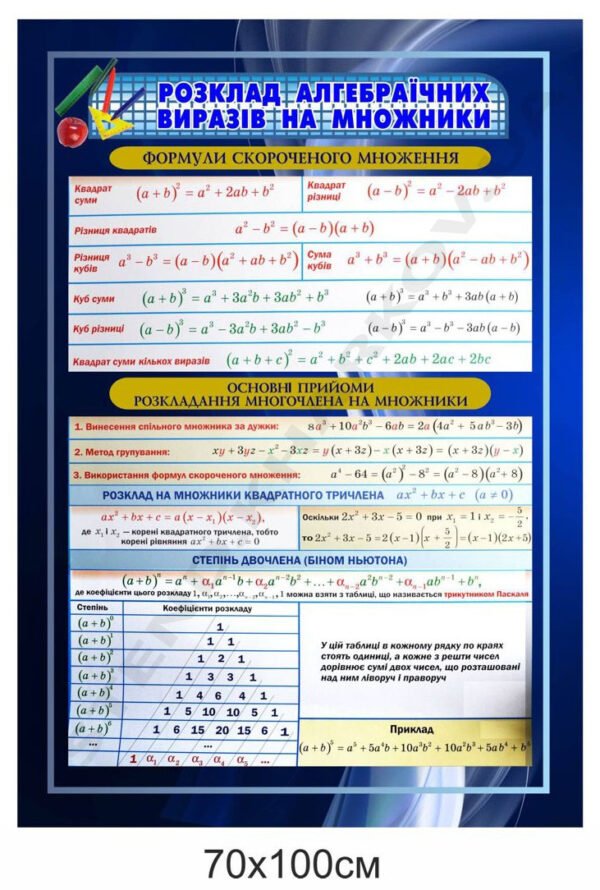 РОЗКЛАД АЛГЕБРАЇЧНИХ
ВИРАЗІВ НА МНОЖНИКИ
ФОРМУЛИ СКОРОЧЕНОГО МНОЖЕННЯ
Квадрат суми (a + b)² = a² + 2ab + b² Квадрат різниці (a − b)² = a² − 2ab + b²
Різниця квадратів a² − b² = (a − b)(a + b)
Різниця кубів a³ − b³ = (a − b)(a² + ab + b²) Сума кубів a³ + b³ = (a + b)(a² − ab + b²)
Куб суми (a + b)³ = a³ + 3a²b + 3ab² + b³ (a + b)³ = a³ + b³ + 3ab(a + b)
Куб різниці (a − b)³ = a³ − 3a²b + 3ab² − b³ (a − b)³ = a³ − b³ − 3ab(a − b)
Квадрат суми кількох виразів (a + b + c)² = a² + b² + c² + 2ab + 2ac + 2bc
ОСНОВНІ ПРИЙОМИ
РОЗКЛАДАННЯ МНОГОЧЛЕНА НА МНОЖНИКИ
1. Винесення спільного множника за дужки: 8a³ + 10a²b³ − 6ab = 2a (4a² + 5ab³ − 3b)
2. Метод групування: xy + 3yz − x² − 3xz = y (x + 3z) − x (x + 3z) = (x + 3z)(y − x)
3. Використання формул скороченого множення: a⁴ − 64 = (a²)² − 8² = (a² − 8)(a² + 8)
РОЗКЛАД НА МНОЖНИКИ КВАДРАТНОГО ТРИЧЛЕНА ax² + bx + c (a ≠ 0)
ax² + bx + c = a (x − x₁)(x − x₂),
де x₁ і x₂ — корені квадратного тричлена, тобто
корені рівняння ax² + bx + c = 0
Оскільки 2x² + 3x − 5 = 0 при x₁ = 1 і x₂ = −5/2,
то 2x² + 3x − 5 = 2 (x − 1)(x + 5/2) = (x − 1)(2x + 5)
СТЕПІНЬ ДВОЧЛЕНА (БІНОМ НЬЮТОНА)
(a + b)ⁿ = aⁿ + α₁aⁿ⁻¹b + α₂aⁿ⁻²b² + ... + αₙ₋₂a²bⁿ⁻² + αₙ₋₁abⁿ⁻¹ + bⁿ,
де коефіцієнти цього розкладу 1, α₁, α₂, ..., αₙ₋₂, αₙ₋₁, 1 можна взяти з таблиці, що називається трикутником Паскаля
Степінь Коефіцієнти розкладу
(a + b)⁰ 1
(a + b)¹ 1 1
(a + b)² 1 2 1
(a + b)³ 1 3 3 1
(a + b)⁴ 1 4 6 4 1
(a + b)⁵ 1 5 10 10 5 1
(a + b)⁶ 1 6 15 20 15 6 1
... ...
1 α₁ α₂ α₃ α₄ α₅ ...
У цій таблиці в кожному рядку по краях
стоять одиниці, а кожне з решти чисел
дорівнює сумі двох чисел, що розташовані
над ним ліворуч і праворуч
Приклад
(a + b)⁵ = a⁵ + 5a⁴b + 10a³b² + 10a²b³ + 5ab⁴ + b⁵
70х100см